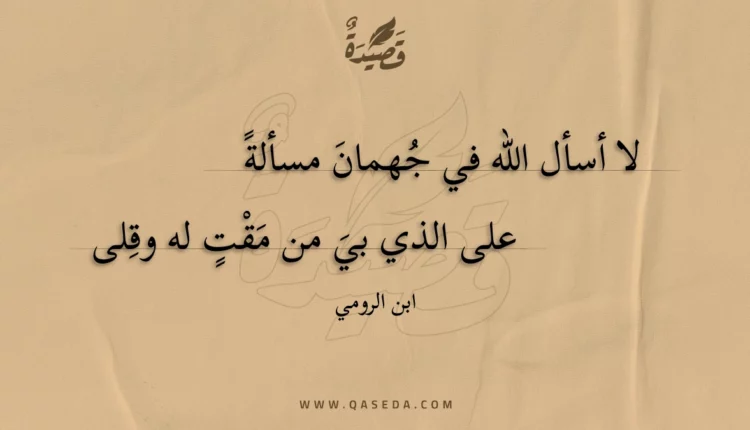 قَصِيدَةٌ
لا أسأل الله في جُهمانَ مسألةً
على الذي بيَ من مَقْتٍ له وقِلى
ابن الرومي
WWW.QASEDA.COM